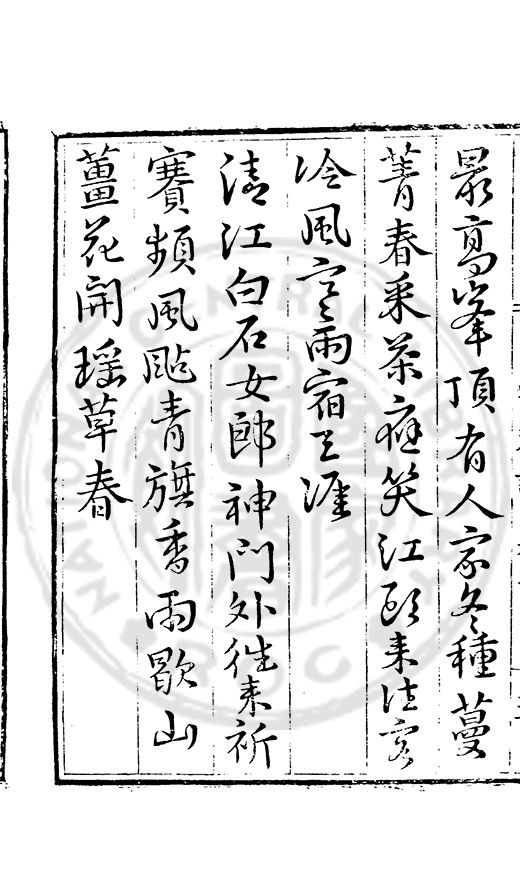 最高峰頂有人家冬種蔓
菁春采茶癡笑江頭來往客
冷風寒雨宿天涯
清江白石女郎神門外往來祈
賽頻風颭青旗香雨歇山
薑花開瑤草春